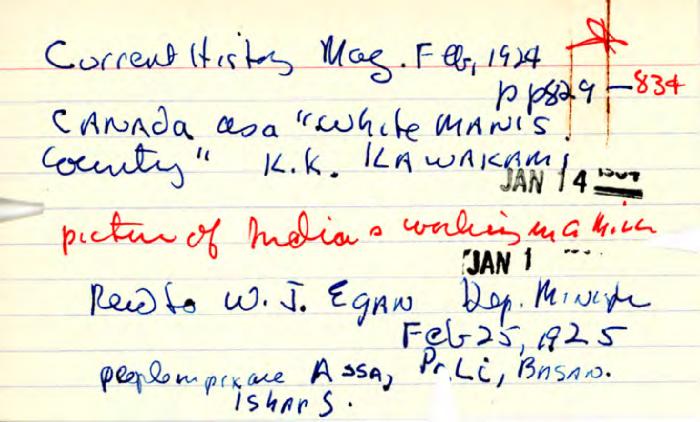 Current History Mag. Feb, 1924
pp829-834
CANADA as a "White MAN'S
Country" K.K. KAWAKAMI
JAN 14
picture of Indians working in a Mill
JAN 1
to W. J. EGAN Dep. Minister
Feb 25, 1925
ASSA,
ISHAR S.